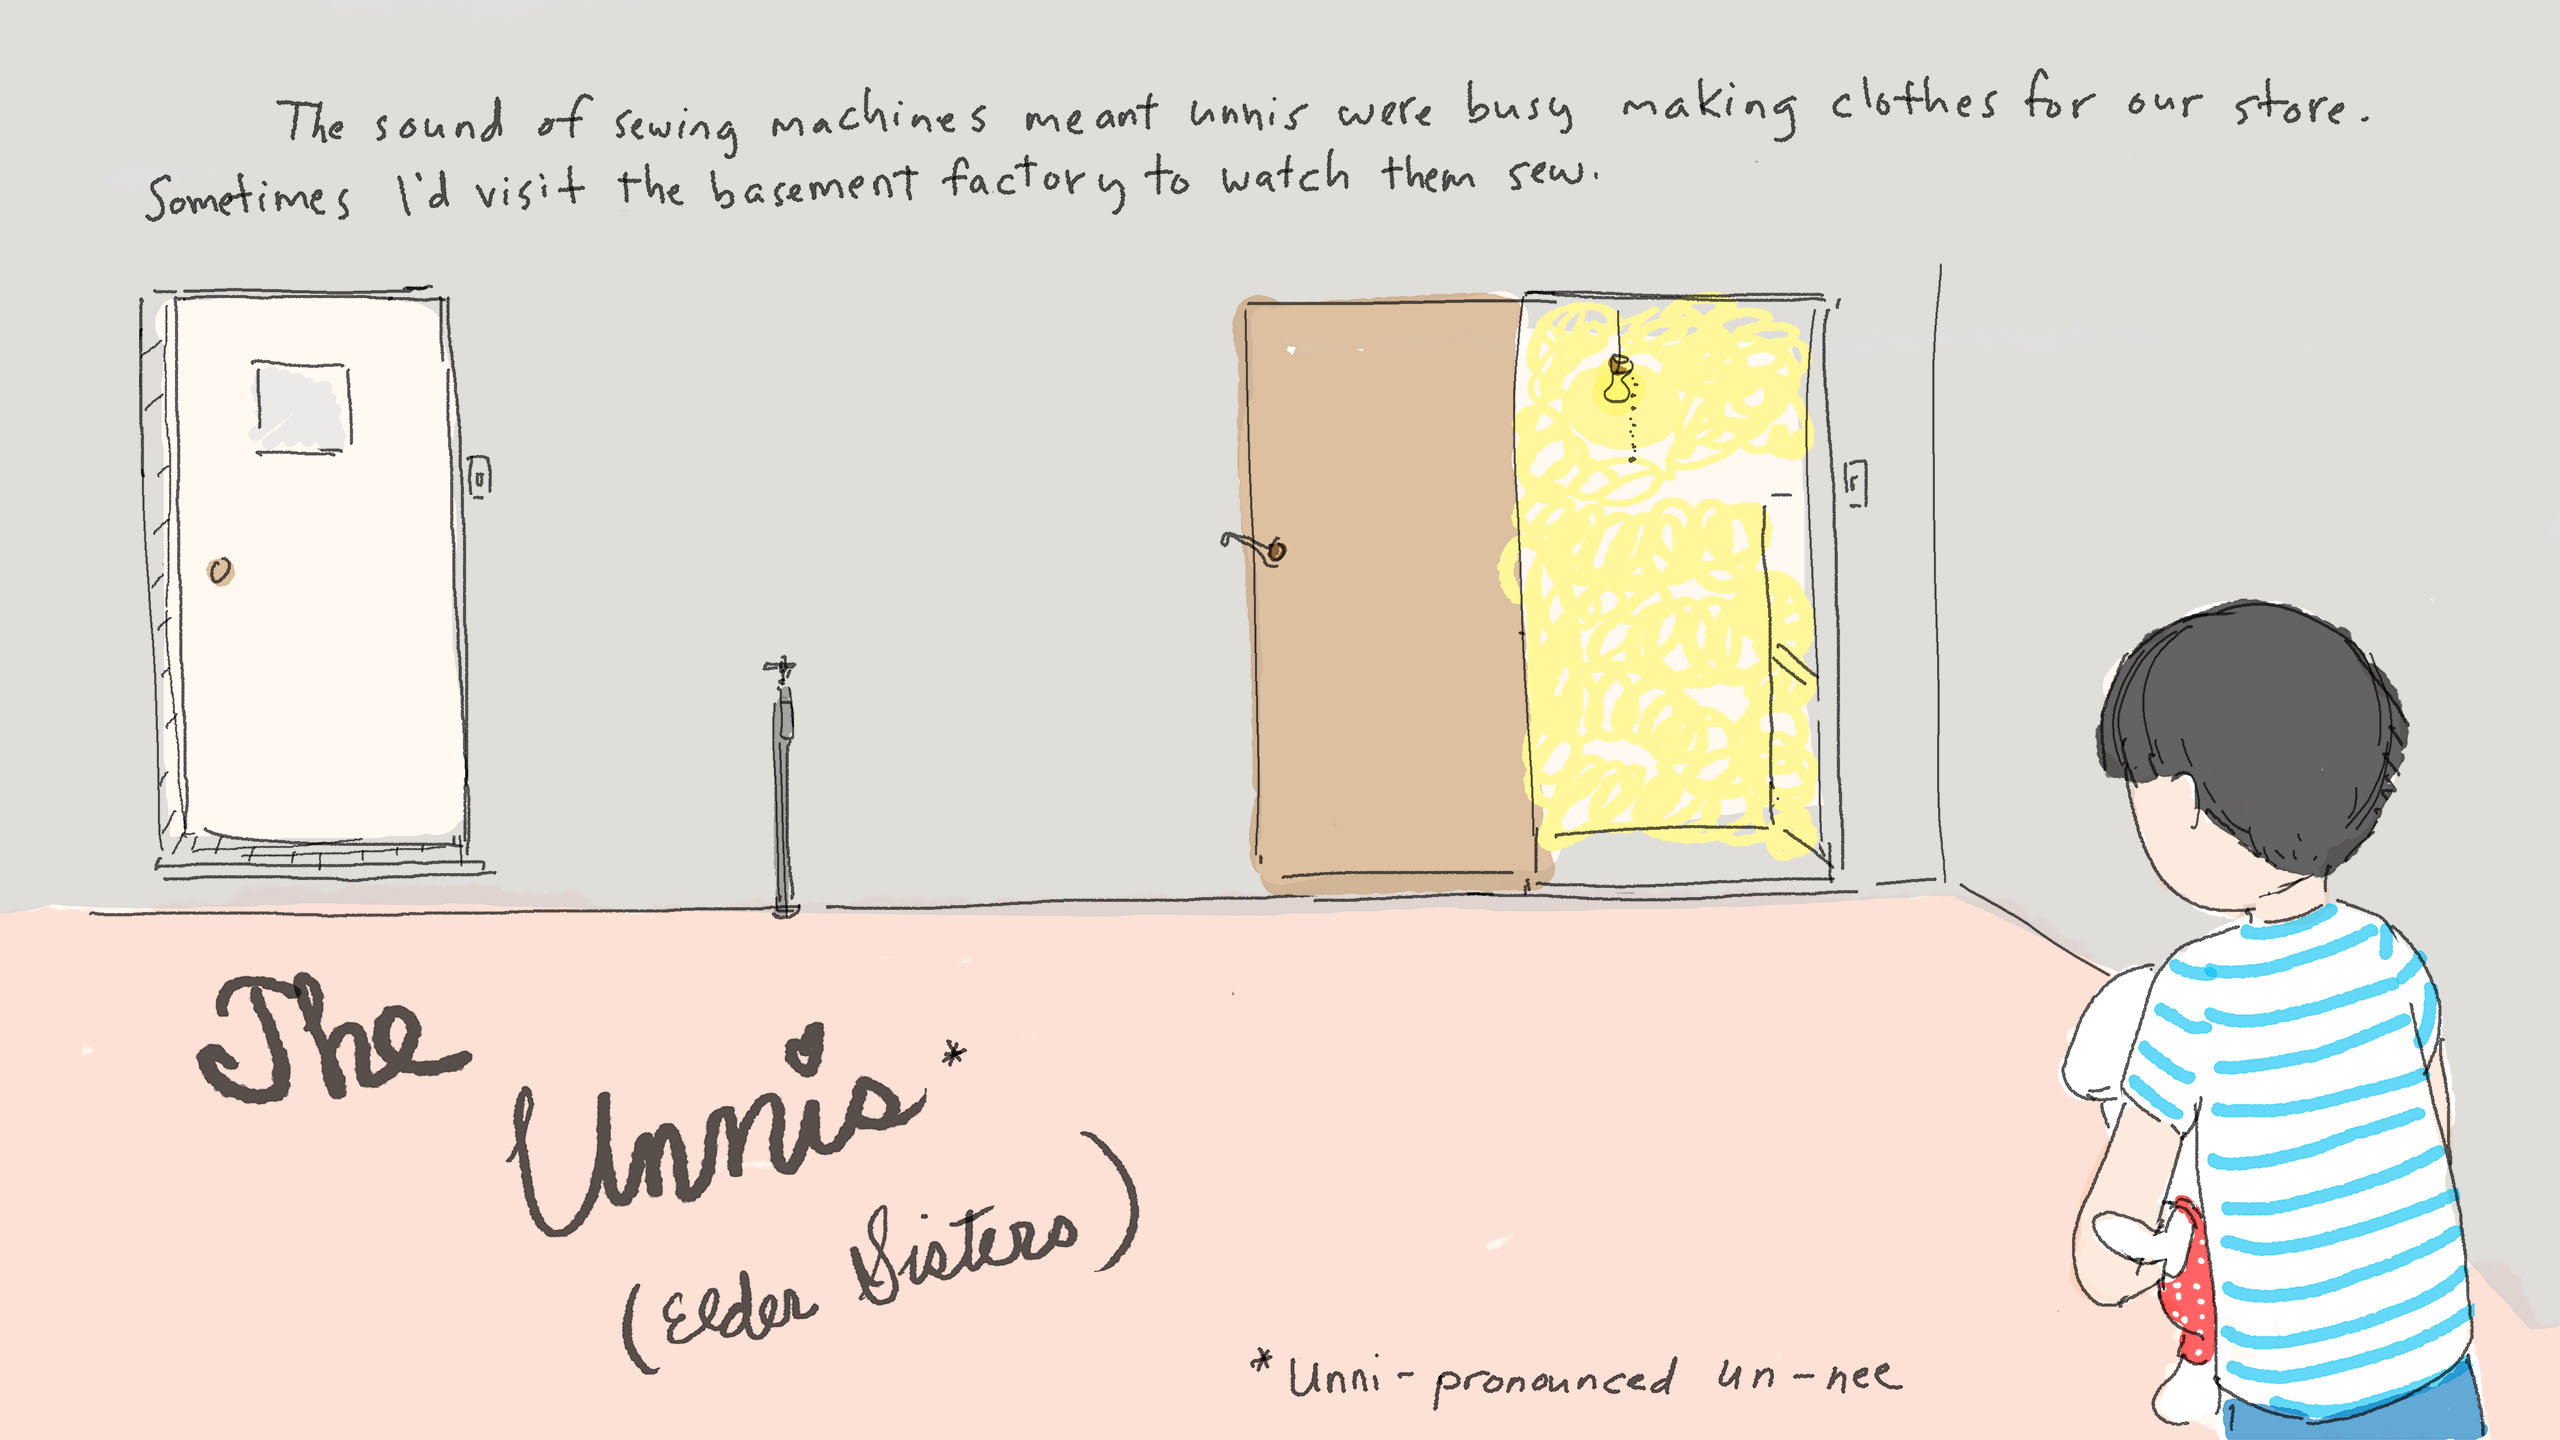 The sound of sewing machines meant unnis were busy making clothes for our store.
Sometimes I'd visit the basement factory to watch them sew.
The
Unnis*
(Elder Sisters)
*Unni - pronounced un-nee